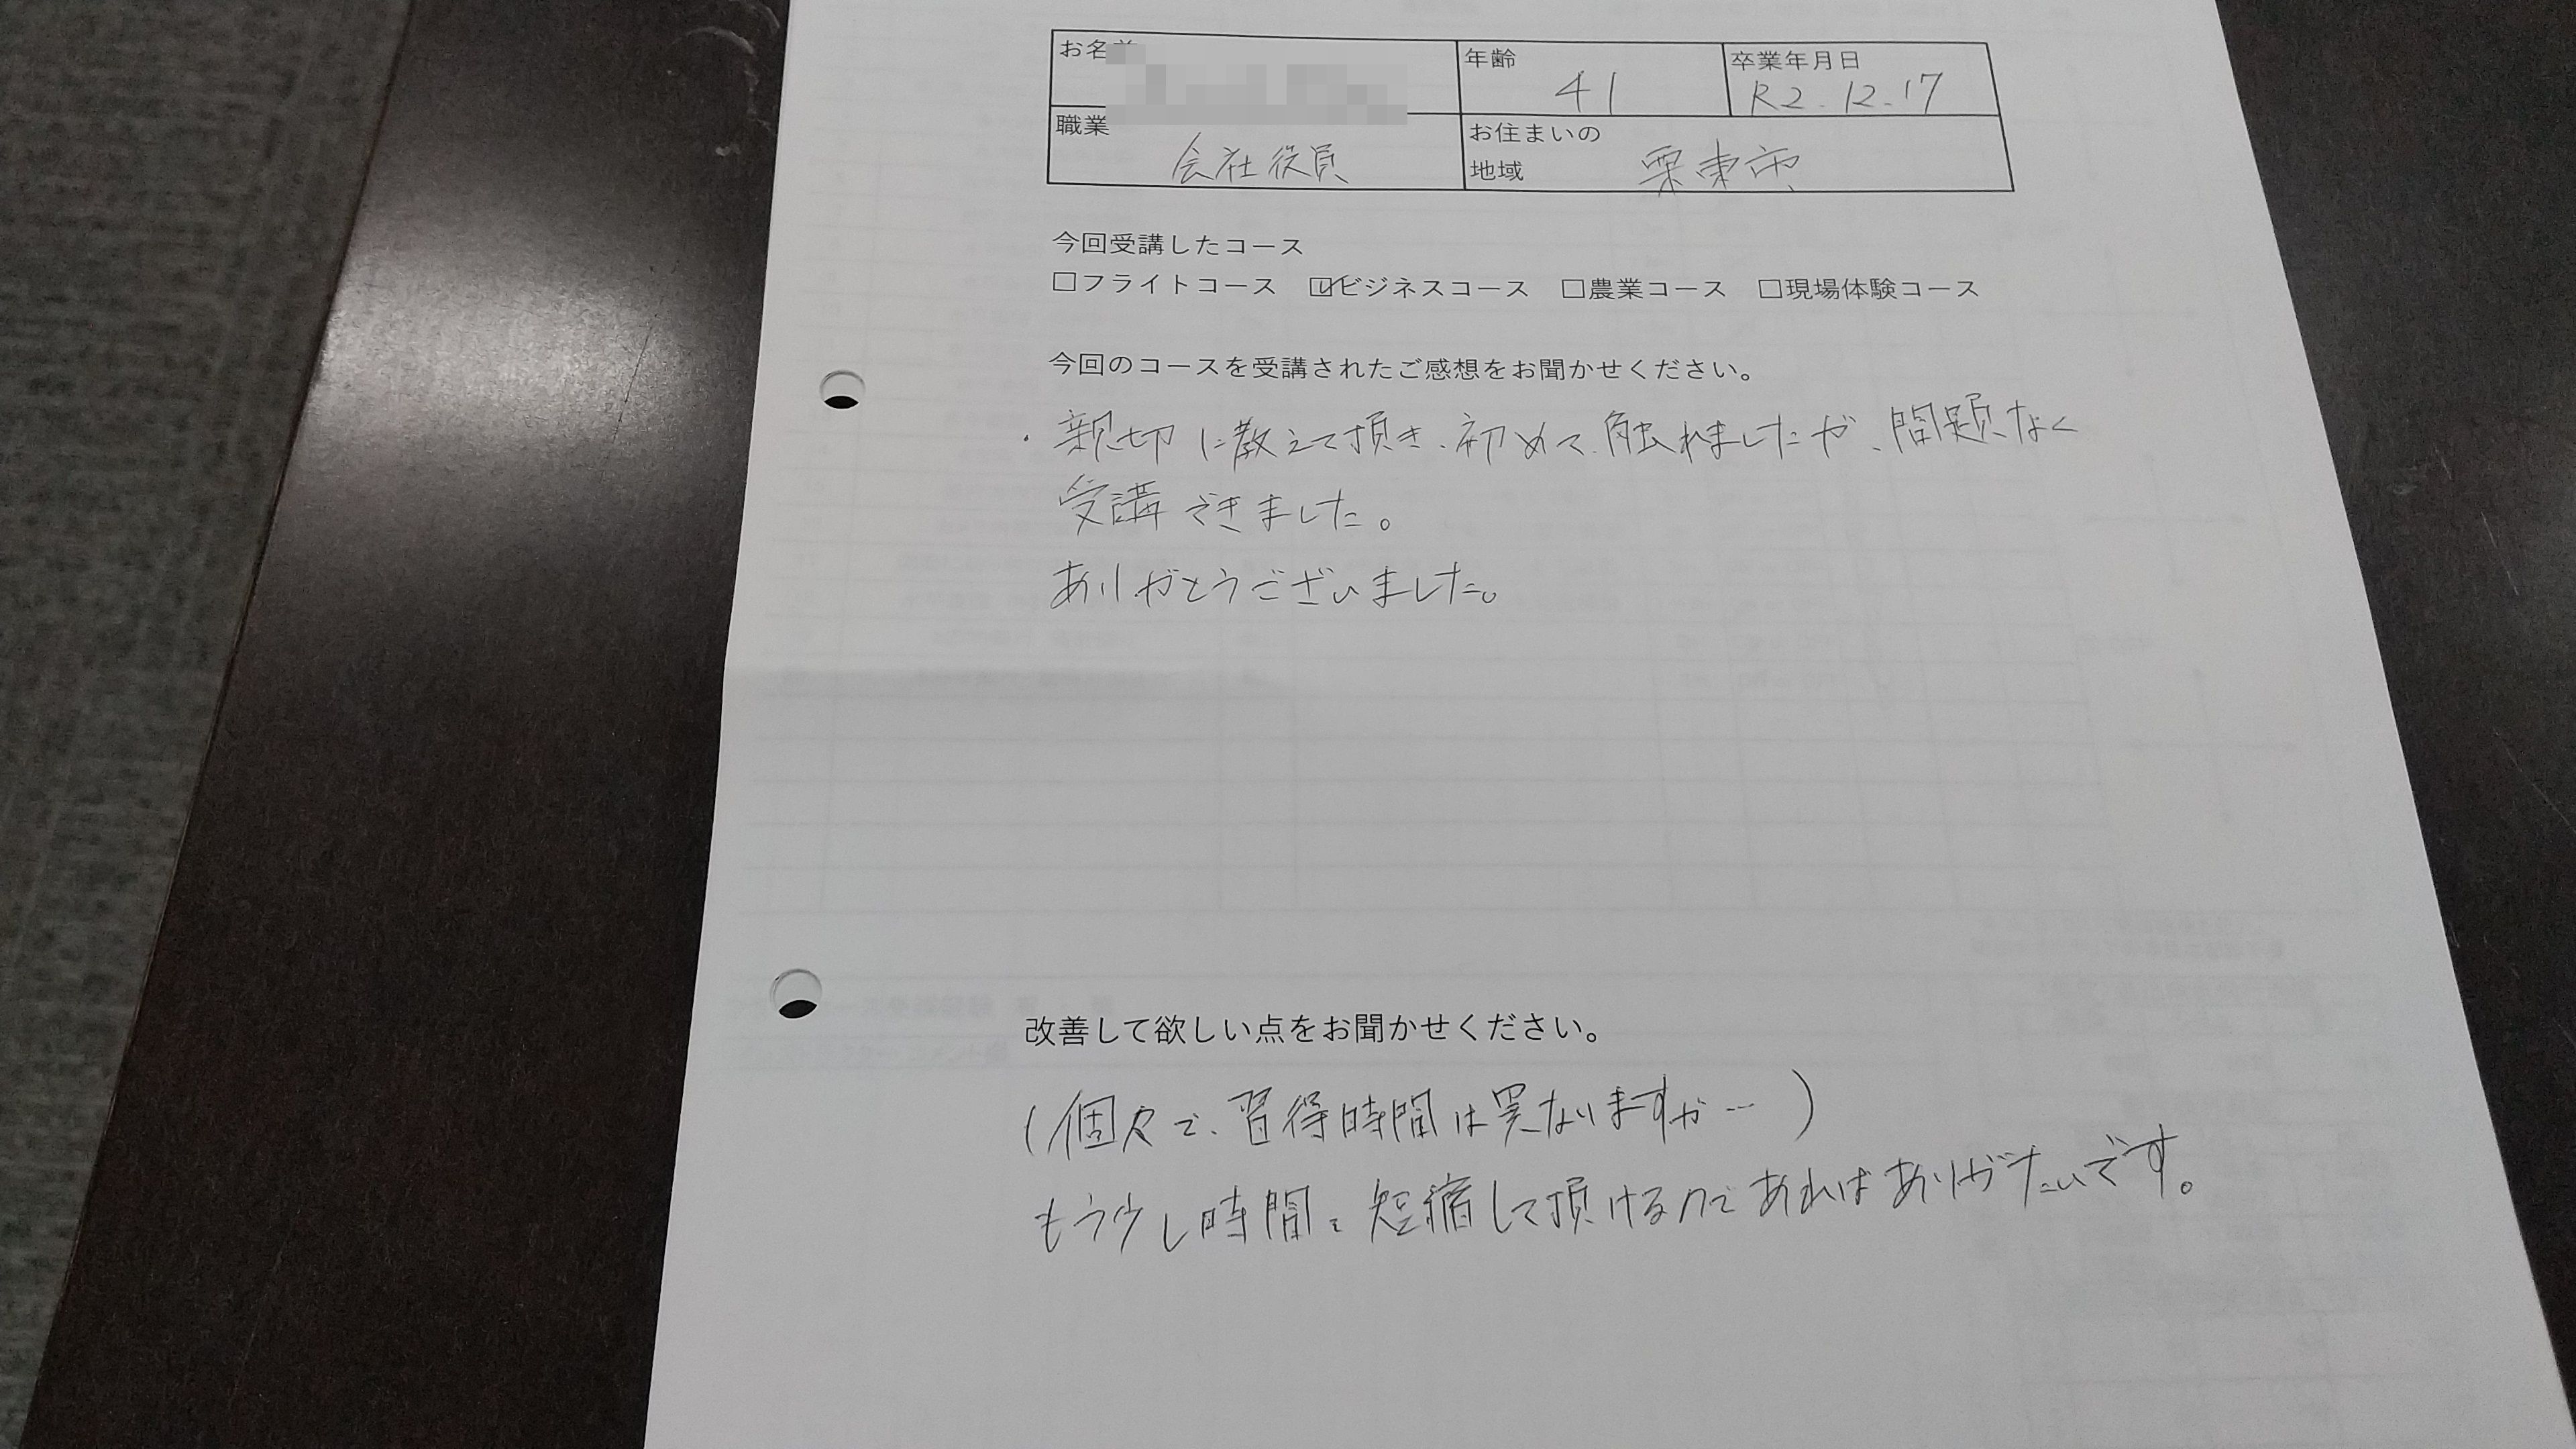 お名前
年齢
41
卒業年月日
R2.12.17
職業
会社役員
お住まいの
地域
栗東市
今回受講したコース
□フライトコース ☑ビジネスコース □農業コース □現場体験コース
今回のコースを受講されたご感想をお聞かせください。
・親切に教えて頂き、初めて触れましたが、問題なく
受講できました。
ありがとうございました。
改善して欲しい点をお聞かせください。
(個々で、習得時間は異なりますが…)
もう少し時間を短縮して頂けるのであればありがたいです。